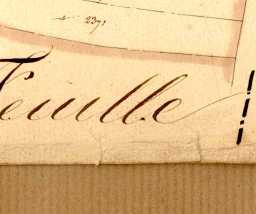 237
Feuille